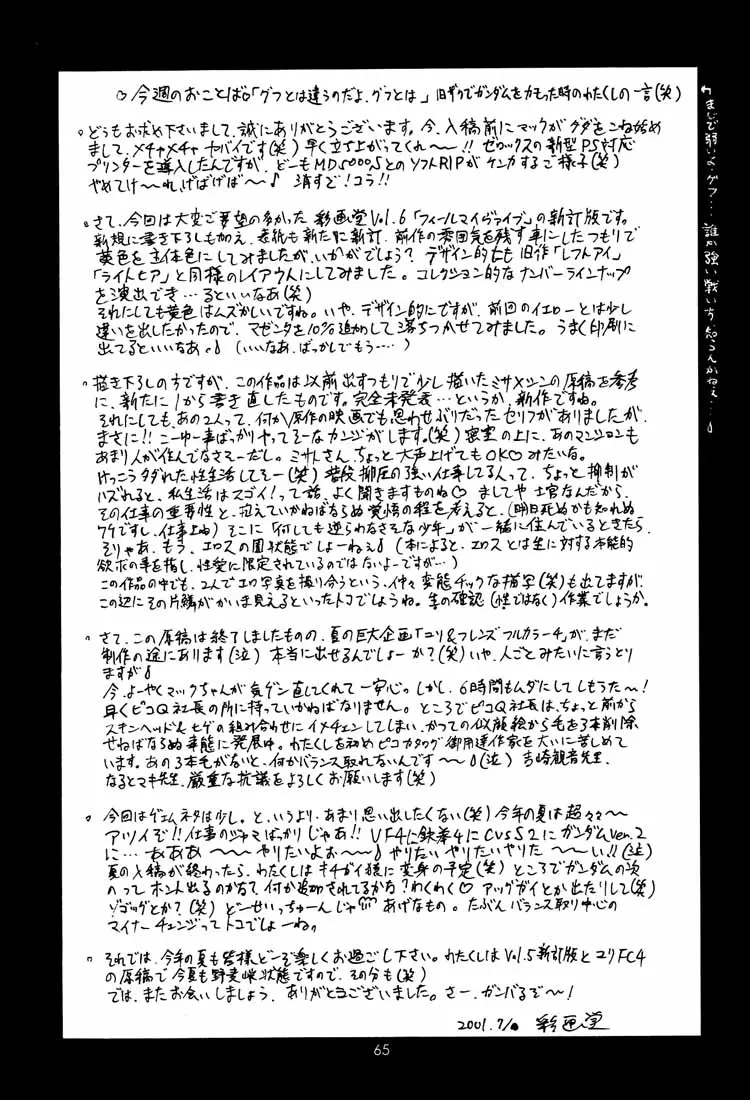 ♡今週のおことば♡「グフとは違うのだよ、グフとは」旧ザクでガンダムをカモった時のわたくしの一言(笑)
↰まじで弱いっス・グフ…。誰か強い戦い方知らんかねぇ…。
。どうもお求め下さいまして、誠にありがとうございます。今、入稿前にマックがグダをこね始め
まして、メチャメチャヤバイです(笑)早く立ち上がってくれ〜〜!!ゼロックスの新型PS対応
プリンターを導入したんですが、どーもMD5000,SとのソフトRIPがケンカするご様子(笑)
やめてけ〜れ、げばげば〜♪ 消すど!コラ!!
。さて、今回は大変ご要望の多かった 彩画堂Vol.6「フィールマイヴァイブ」の新訂版です。
新規に書き下ろしも加え、表紙も新たに新訂、前作の雰囲気を残す事にしたつもりで
黄色を主体色にしてみましたが、いかがでしょう?デザイン的にも旧作「レフトアイ」
「ライトヒア」と同様のレイアウトにしてみました。コレクション的なナンバーラインナップ
を演出でき…るといいなあ(笑)
それにしても黄色はムズかしいですね。いや、デザイン的にですが、前回のイエローとは少し
違いを出したかったので、マゼンタを10%追加して落ちつかせてみました。うまく印刷に
出てるといいなあ。♪ (いいなあ、ばっかしでもう……)
。描き下ろしのちですが、この作品は以前出すつもりで少し描いたミサ×シンの原稿を参考
に、新たに1から書き直したものです。完全未発表…というか、新作ですね。
それにしても、あの2人って、何か原作の映画でも思わせぶりだったセリフがありましたが、
まさに!!こーゆー事ばっかりやってそーなカンジがします。(笑)密室の上に、あのマンションも
あまり人が住んでなさそーだし。ミサトさん、ちょっと大声上げてもOK♡みたいな。
けっこうタダれた性生活してそー(笑)普段抑圧の強い仕事してる人って、ちょっと抑制が
ハズれると、私生活はスゴイ!って話、よく聞きますものね♡ ましてや士官なんだから、
その仕事の重要性と、抱えていかねばならぬ覚悟の程を考えると、(明日死ぬかも知れぬ
ワケですし、仕事上ね)そこに「何しても逆らわなさそな少年」が一緒に住んでいるときたら、
そりゃあ、もう、エロスの園状態でしょーねぇ♪(本によると、エロスとは生に対する本能的
欲求の事を指し、性愛に限定されているのではないよーですが…)
この作品の中でも、2人でエロ写真を撮り合うという、仲々変態チックな描写(笑)も出てますが、
この辺にその片鱗がかいま見えるといったトコでしょうね。生の確認(性ではなく)作業でしょうか。
。さて、この原稿は終了しましたものの、夏の巨大企画「ユリ&フレンズフルカラー4」が、まだ
制作の途にあります(泣) 本当に出せるんでしょーか?(笑)いや、人ごとみたいに言うとり
ますが♪
今、よーやくマックちゃんが気ゲン直してくれて一安心。しかし、6時間もムダにしてしもうた〜!
早くピコQ社長の所に持っていかねばなりません。ところでピコQ社長は、ちょっと前から
スキンヘッド&ヒゲの組み合わせにイメチェンしてしまい、かつての似顔絵から毛を3本削除
せねばならぬ事態に発展中。わたくしを初めピコカタログ御用達作家を大いに苦しめて
います。あの3本毛がないと、何かバランス取れないんです〜〜♪(泣) 吉崎観音先生、
なるとマキ先生、厳重な抗議をよろしくお願いします(笑)
。今回はゲエムネタは少し。と、いうより、あまり思い出したくない(笑)今年の夏は超々々〜
アツイぞ!!仕事のジャマばっかりじゃあ!! VF4に鉄拳4にCVSS2にガンダムVer.2
に… ああああ〜〜〜やりたいよお〜〜♪やりたいやりたいやりた〜〜い!!(泣)
夏の入稿が終わったら、わたくしはキチガイ猿に変身の予定(笑)ところでガンダムの次
のってホント出るのかな?何か追加されてるかな?わくわく♡アッグガイとか出たりして(笑)
ゾゴックとか?(笑) どーせいっちゅーんじゃ あげなもの。たぶんバランス取り中心の
マイナーチェンジってトコでしょーね。
。それでは、今年の夏も皆様どーぞ楽しくお過ごし下さい。わたくしはVol.5新訂版とユリFC4
の原稿で今夏も野麦峠状態ですので、その分も(笑)
では、またお会いしましょう、ありがとうございました。さー、ガンバるぞ〜!
2001.7/。 彩画堂
65